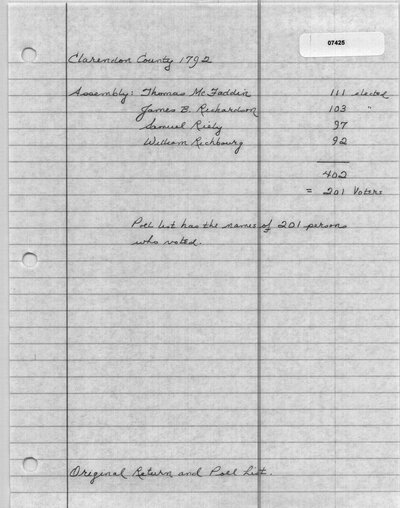 07425
Clarendon County 1792
Assembly: Thomas McFaddin 111 elected
James B. Richardson 103 "
Samuel 97
William Richbourg 92
402
= 201 Voters
Poll list has the names of 201 persons
who voted.
Original Return and Poll List.